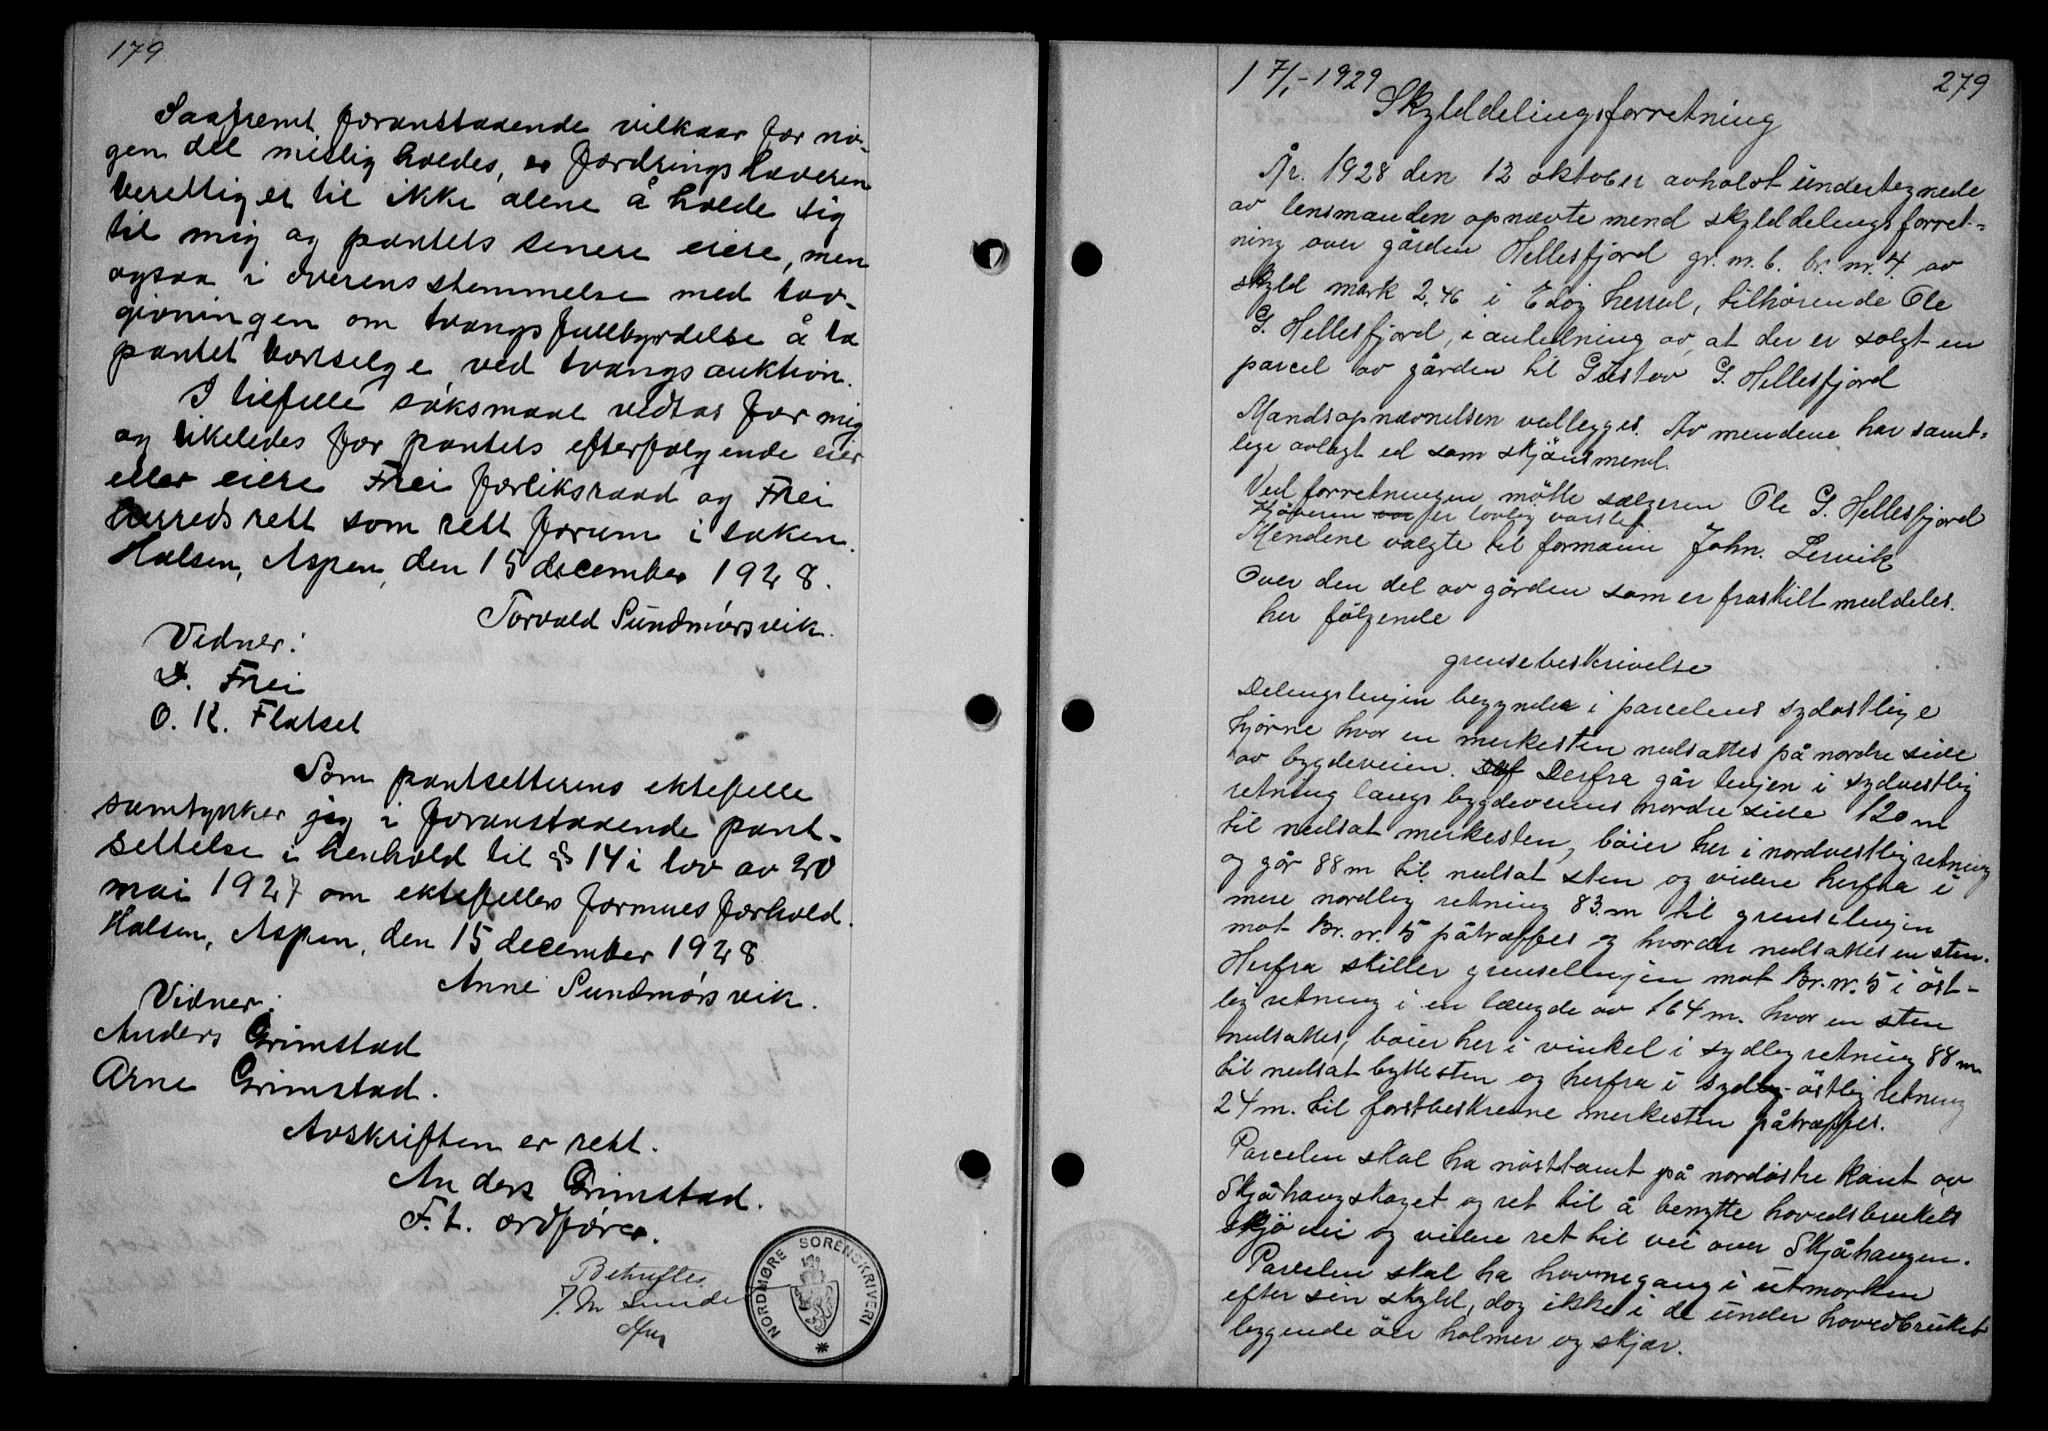 179
Saafremt foranstaaende vilkaar for no-
gen del misligholdes, er fordringshaveren
berettiget til ikke alene å holde sig
til mig og pantets senere eiere, men
ogsaa i overensstemmelse med lov-
givningen om tvangsfullbyrdelse å la
pantet bortselge ved tvangsauktion.
I tilfelle søksmaal vedtas for mig
og likeledes for pantets efterfølgende eier
eller eiere Frei forliksraad og Frei
herredsrett som rett forum i saken.
Halsen, Aspen, den 15 december 1928.
Torvald Sundmørsvik.
Vidner:
D. Frei
O. K. Flatset
Som pantsetterens ektefelle
samtykker jeg i foranstaaende pant-
settelse i henhold til § 14 i lov av 20
mai 1927 om ektefellers formuesforhold.
Halsen, Aspen, den 15 december 1928
Anne Sundmørsvik.
Vidner:
Anders Grimstad
Arne Grimstad.
Avskriften er rett.
Anders Grimstad.
F. t. ordfører.
Bekreftes
NORDMØRE SORENSKRIVERI
17/1-1929
279
Skylddelingsforretning
År. 1928 den 12 oktober avholdt undertegnede
av lensmanden opnævte mend skylddelingsforret-
ning over gården Hellesfjord gr. nr. 6. br. nr. 4. av
skyld mark 2,46 i Edøy herred, tilhørende Ole
G. Hellesfjord, i anledning av, at der er solgt en
parcel av gården til Gustav G. Hellesfjord
Mandsopnævnelsen vedlegges. Av mendene har samt-
lige avlagt ed som skjönsmend.
Ved forretningen mötte sælgeren Ole G. Hellesfjord
Kjøberen var før lovlig varslet.
Mendene valgte til formann John. Lervik
Over den del av gården som er fraskilt meddeles.
her følgende
grensebeskrivelse
Delingslinjen begynder i parcelens sydøstlige
hjørne hvor en merkesten nedsattes på nordre side
av bygdeveien. Derfra går linjen i sydvestlig
retning langs bygdeveiens nordre side 120 m
til nedsat merkesten, böier her i nordvestlig retning
og går 88 m til nedsat sten og videre herfra i
mere nordlig retning 83. m til grenselinjen
mot Br. nr. 5 påtræffes og hvorder nedsattes en sten.
Herfra skiller grenselinjen mot Br. nr. 5 i öst-
lig retning i en længde av 164 m. hvor en sten
nedsattes, böier her i vinkel i sydlig retning 88 m
til nedsat byttesten og herfra i sydlig-östlig retning
24 m. til førstbeskrevne merkesten påtræffes.
Parcelen skal ha nøsttomt på nordøstre kant av
Skjåhaugskaget og ret til å benytte hovedsbrukets
skjö dei og videre ret til vei over Skjåhaugen.
Parcelen skal ha havnegang i utmarken
efter sin skyld, dog ikke i de under hovedbruket
liggende öer holmer og skjær.